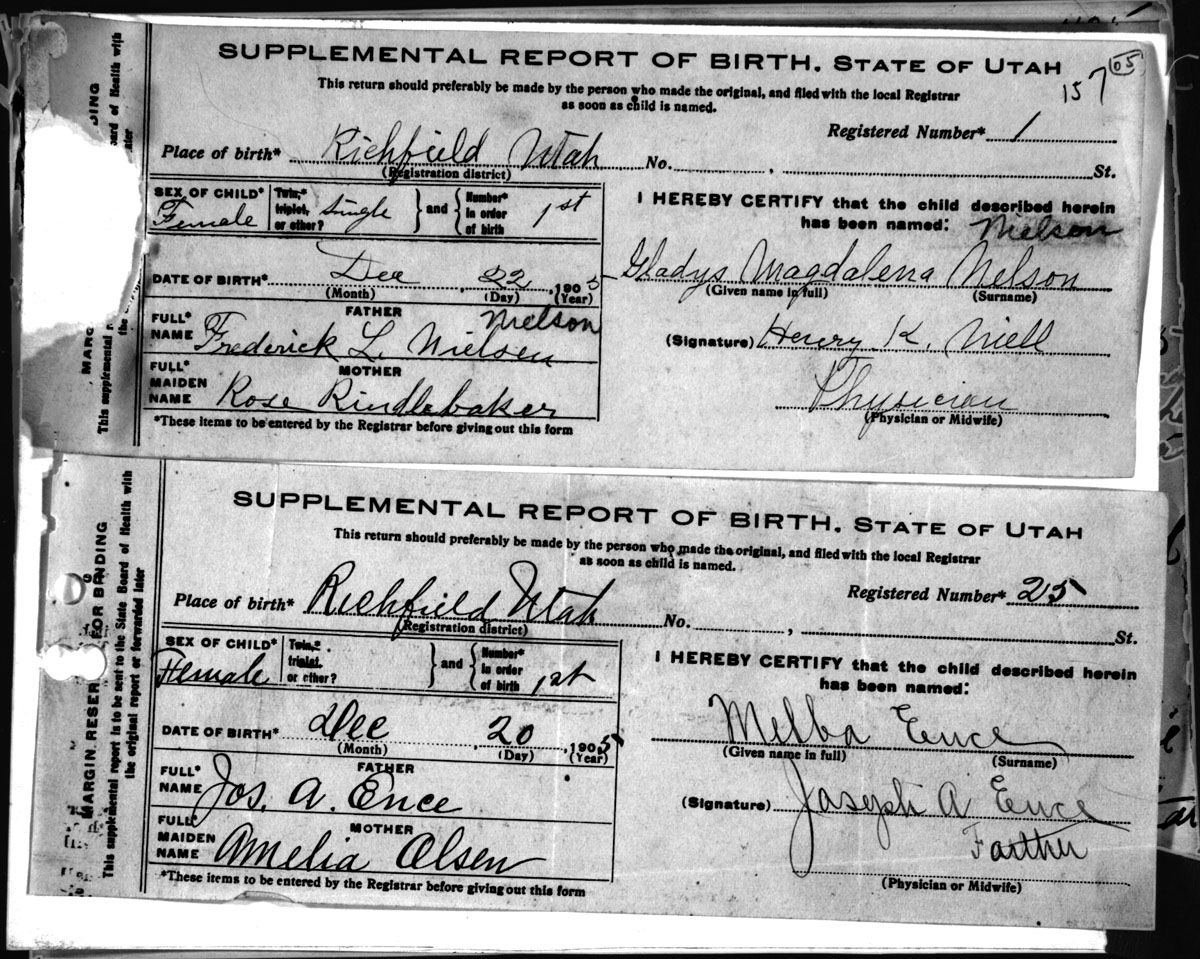 SUPPLEMENTAL REPORT OF BIRTH. STATE OF UTAH
05
157
This return should preferably be made by the person who made the original, and filed with the local Registrar
as soon as child is named.
Registered Number* 1
Place of birth* Richfield Utah No. , St.
(Registration district)
SEX OF CHILD* Female
Twin,* triplet, or other? Single } and { Number* in order of birth 1st
I HEREBY CERTIFY that the child described herein
has been named: Nielson
DATE OF BIRTH* Dec , 22 , 1905
(Month) (Day) (Year)
Gladys Magdalena Nelson
(Given name in full) (Surname)
FATHER
FULL* NAME Frederick L. Nielsen
Nielson
(Signature) Henry K. Niell
MOTHER
FULL* MAIDEN NAME Rose Rindlebaker
Physician
(Physician or Midwife)
*These items to be entered by the Registrar before giving out this form
SUPPLEMENTAL REPORT OF BIRTH. STATE OF UTAH
This return should preferably be made by the person who made the original, and filed with the local Registrar
as soon as child is named.
Registered Number* 25
Place of birth* Richfield Utah No. , St.
(Registration district)
SEX OF CHILD* Female
Twin,* triplet, or other? } and { Number* in order of birth 1st
I HEREBY CERTIFY that the child described herein
has been named:
DATE OF BIRTH* Dec , 20 , 1905
(Month) (Day) (Year)
Melba Ence
(Given name in full) (Surname)
FATHER
FULL* NAME Jos. A. Ence
(Signature) Joseph A Ence
Farther
MOTHER
FULL* MAIDEN NAME Amelia Olsen
(Physician or Midwife)
*These items to be entered by the Registrar before giving out this form
MARGIN RESER FOR BINDING
This supplemental report is to be sent to the State Board of Health with
the original report or forwarded later